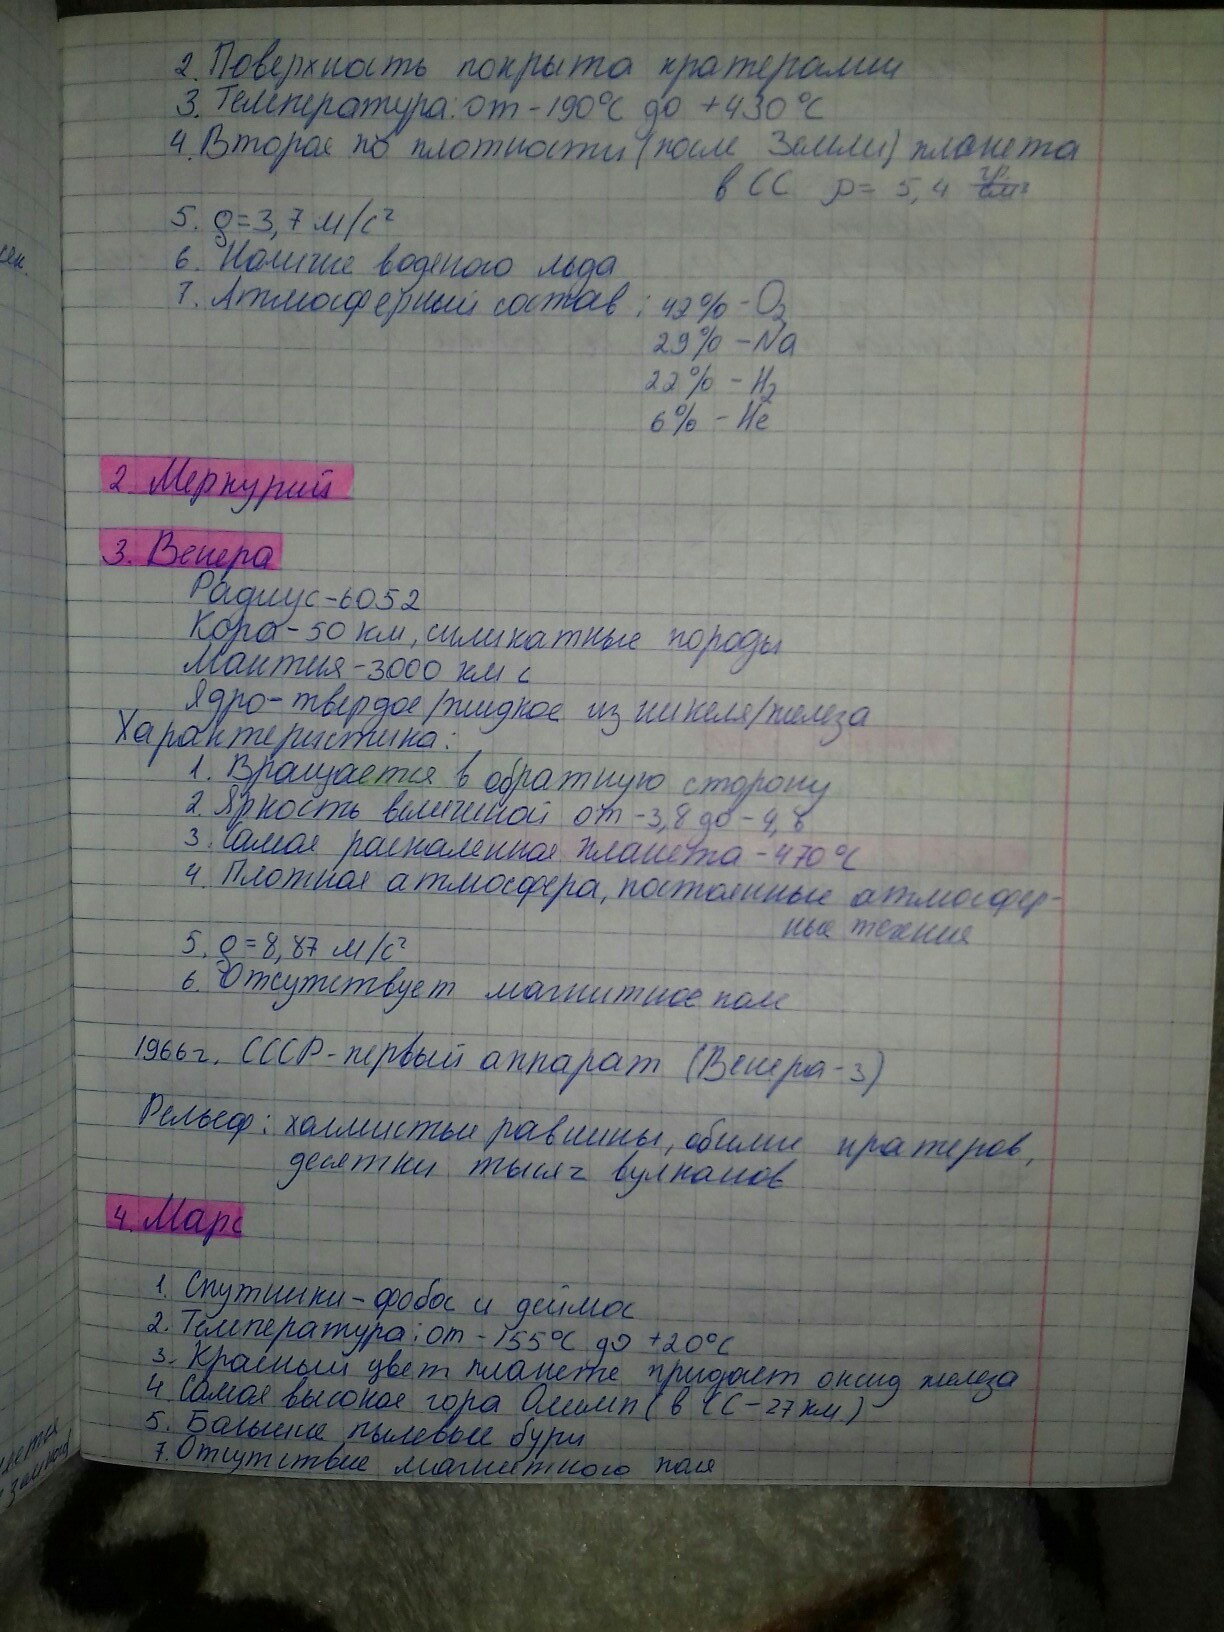 2. Поверхность покрыта кратерами
3. Температура: от -190°С до +430°С
4. Вторая по плотности (после Земли) планета
в СС ρ= 5,4 гр/см³
5. g=3,7 м/с²
6. Наличие водяного льда
7. Атмосферный состав: 42% - O₂
29% - Na
22% - H₂
6% - He
2. Меркурий
3. Венера
Радиус-6052
Кора-50 км, силикатные породы
Мантия-3000 км с
Ядро-твердое/жидкое из никеля/железа
Характеристика:
1. Вращается в обратную сторону
2. Яркость величиной от -3,8 до -4,8
3. Самая раскаленная планета -470°С
4. Плотная атмосфера, постоянные атмосфер-
ные течения
5. g=8,87 м/с²
6. Отсутствует магнитное поле
1966г. СССР-первый аппарат (Венера-3)
Рельеф: холмистые равнины, обилие кратеров,
десятки тысяч вулканов
4. Марс
1. Спутники-фобос и деймос
2. Температура: от -155°С до +20°С
3. Красный цвет планете придает оксид железа
4. Самая высокая гора Олимп (в СС-27км)
5. Большие пылевые бури
7. Отсутствие магнитного поля